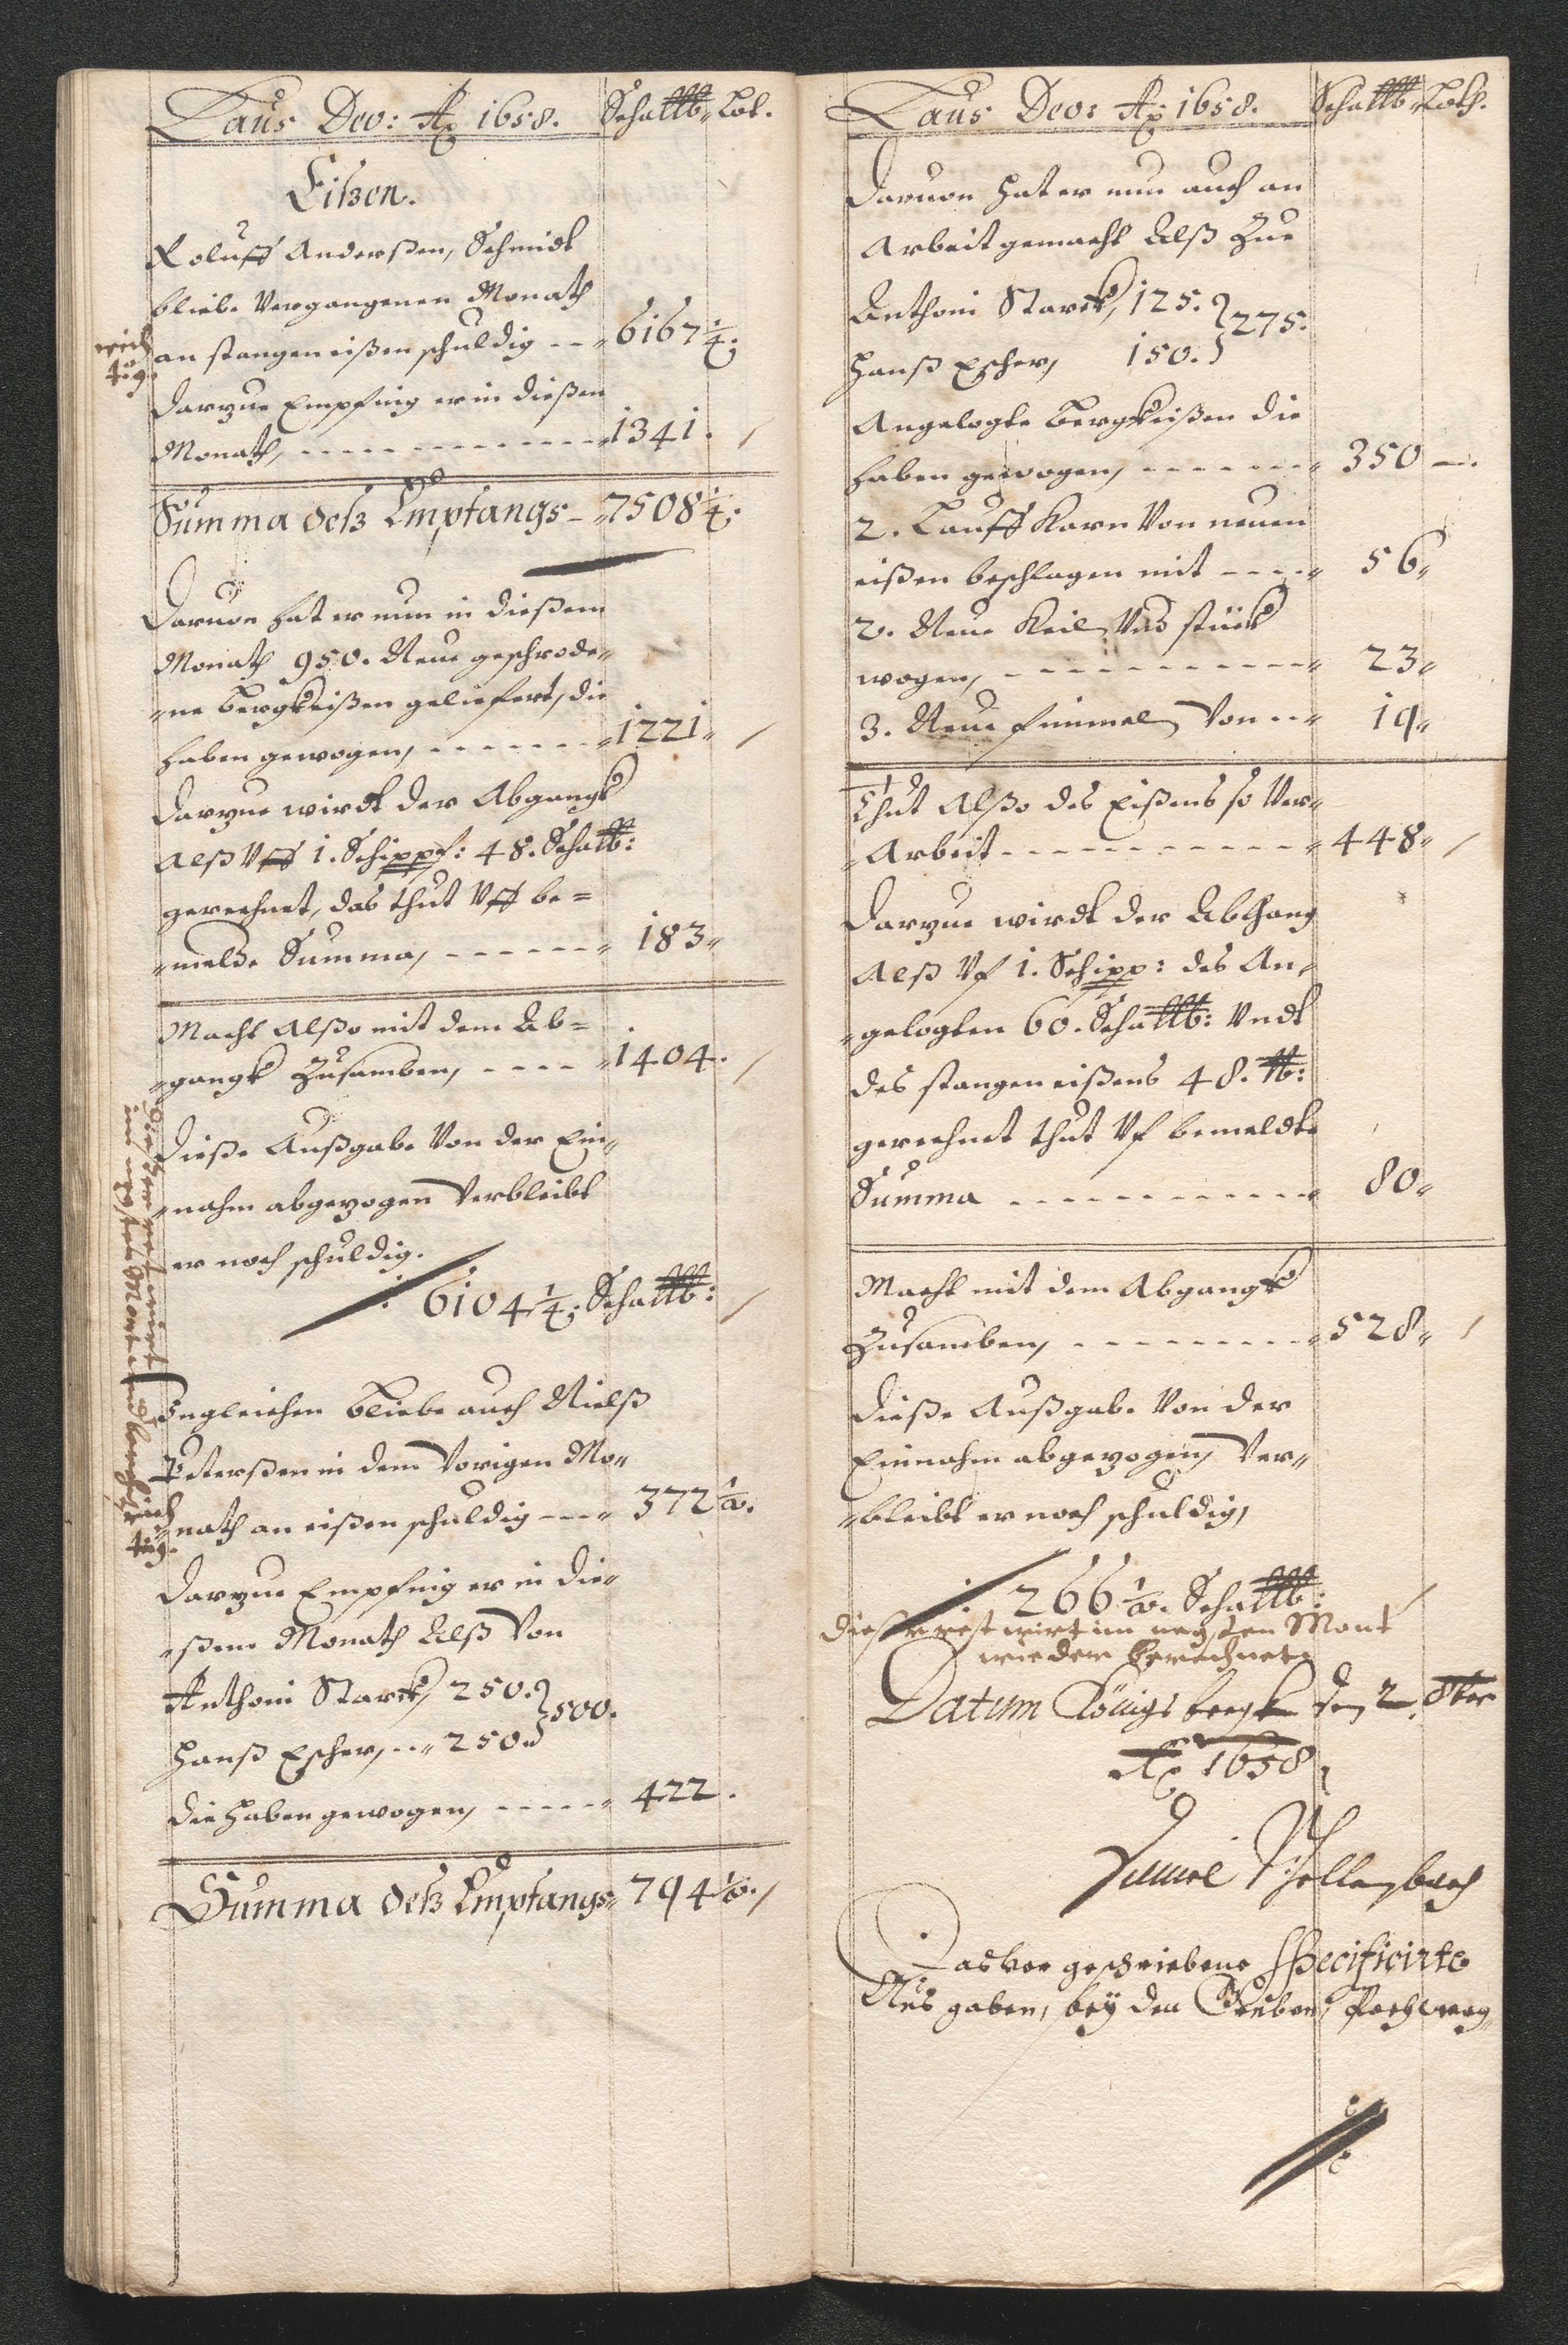 Laus Deo: Ao 1658. Schall℔ Lot.
Eißen.
Roluff Anderßen, Schmidt
bliebe Vergangenen Monath
an stangen eißen schuldig -- 6167 1/4:
rich
tig.
Darzue Empfing er in dießen
Monath, ---------- 1341.
Summa deß Empfangs - 7508 1/4:
Daruon hat er nun in dießem
Monath 950. Neue geschrode„
„ne Bergkeißen geliefert, die
haben gewogen, ------- 1221„
Darzue wirdt der Abgangk
Alß Uff 1. Schippf: 48. Schal℔:
gerechnet, das thut Uff be=
„melde Summa, ------ 183„
Macht Alßo mit dem Ab=
„gangk Zusamben, ---- 1404.
Dieße Außgabe Von der Ein„
„nahm abgezogen Verbleibt
er noch schuldig.
6104 1/4: Schall℔:
Dieser rest wirt
im negsten Mont berechnet
Ingleichen bliebe auch Nielß
Peterßen in dem Vorigen Mo„
„nath an eißen schuldig --- 372 1/2.
rich
tig.
Darzue Empfing er in die„
„ßem Monath Alß Von
Anthoni Starck, 250.
} 500.
Hanß Escher, -- 250.
die haben gewogen, ----- 422.
Summa deß Empfangs 794 1/2.
Laus Deo: Ao 1658. Schall℔ Loth.
Daruon hat er nun auch an
Arbeit gemacht Alß Zue
Anthoni Starck, 125.
} 275.
Hanß Escher, 150.
Angelogte Bergkeißen die
haben gewogen, ------- 350 —.
2. Lauff Karn Von neuen
eißen beschlagen mit ---- 56„
2. Neue Keil, Und stück
wogen, ----------- 23„
3. Neue fimmel, Von -- 19„
Thut Alßo des Eißens so Ver„
„Arbeit ----------- 448„
Darzue wirdt der Abthang
Alß Uf 1. Schipp: des An„
„gelogten 60. Schall℔: Undt
des stangen eißens 48. ℔:
gerechnet thut Uf bemeldte
Summa ----------- 80„
Macht mit dem Abgangk
Zusamben, --------- 528„
Dieße Außgabe Von der
Einnahm abgezogen, Ver„
„bleibt er noch schuldig,
266 1/2. Schall℔:
Dieser rest wirt im negsten Mont
wieder berechnet
Datum Königsbergk den 2. 8ber
Ao 1658
Das vor geschriebene Specificirte
Aus gaben, bey den Gruben,